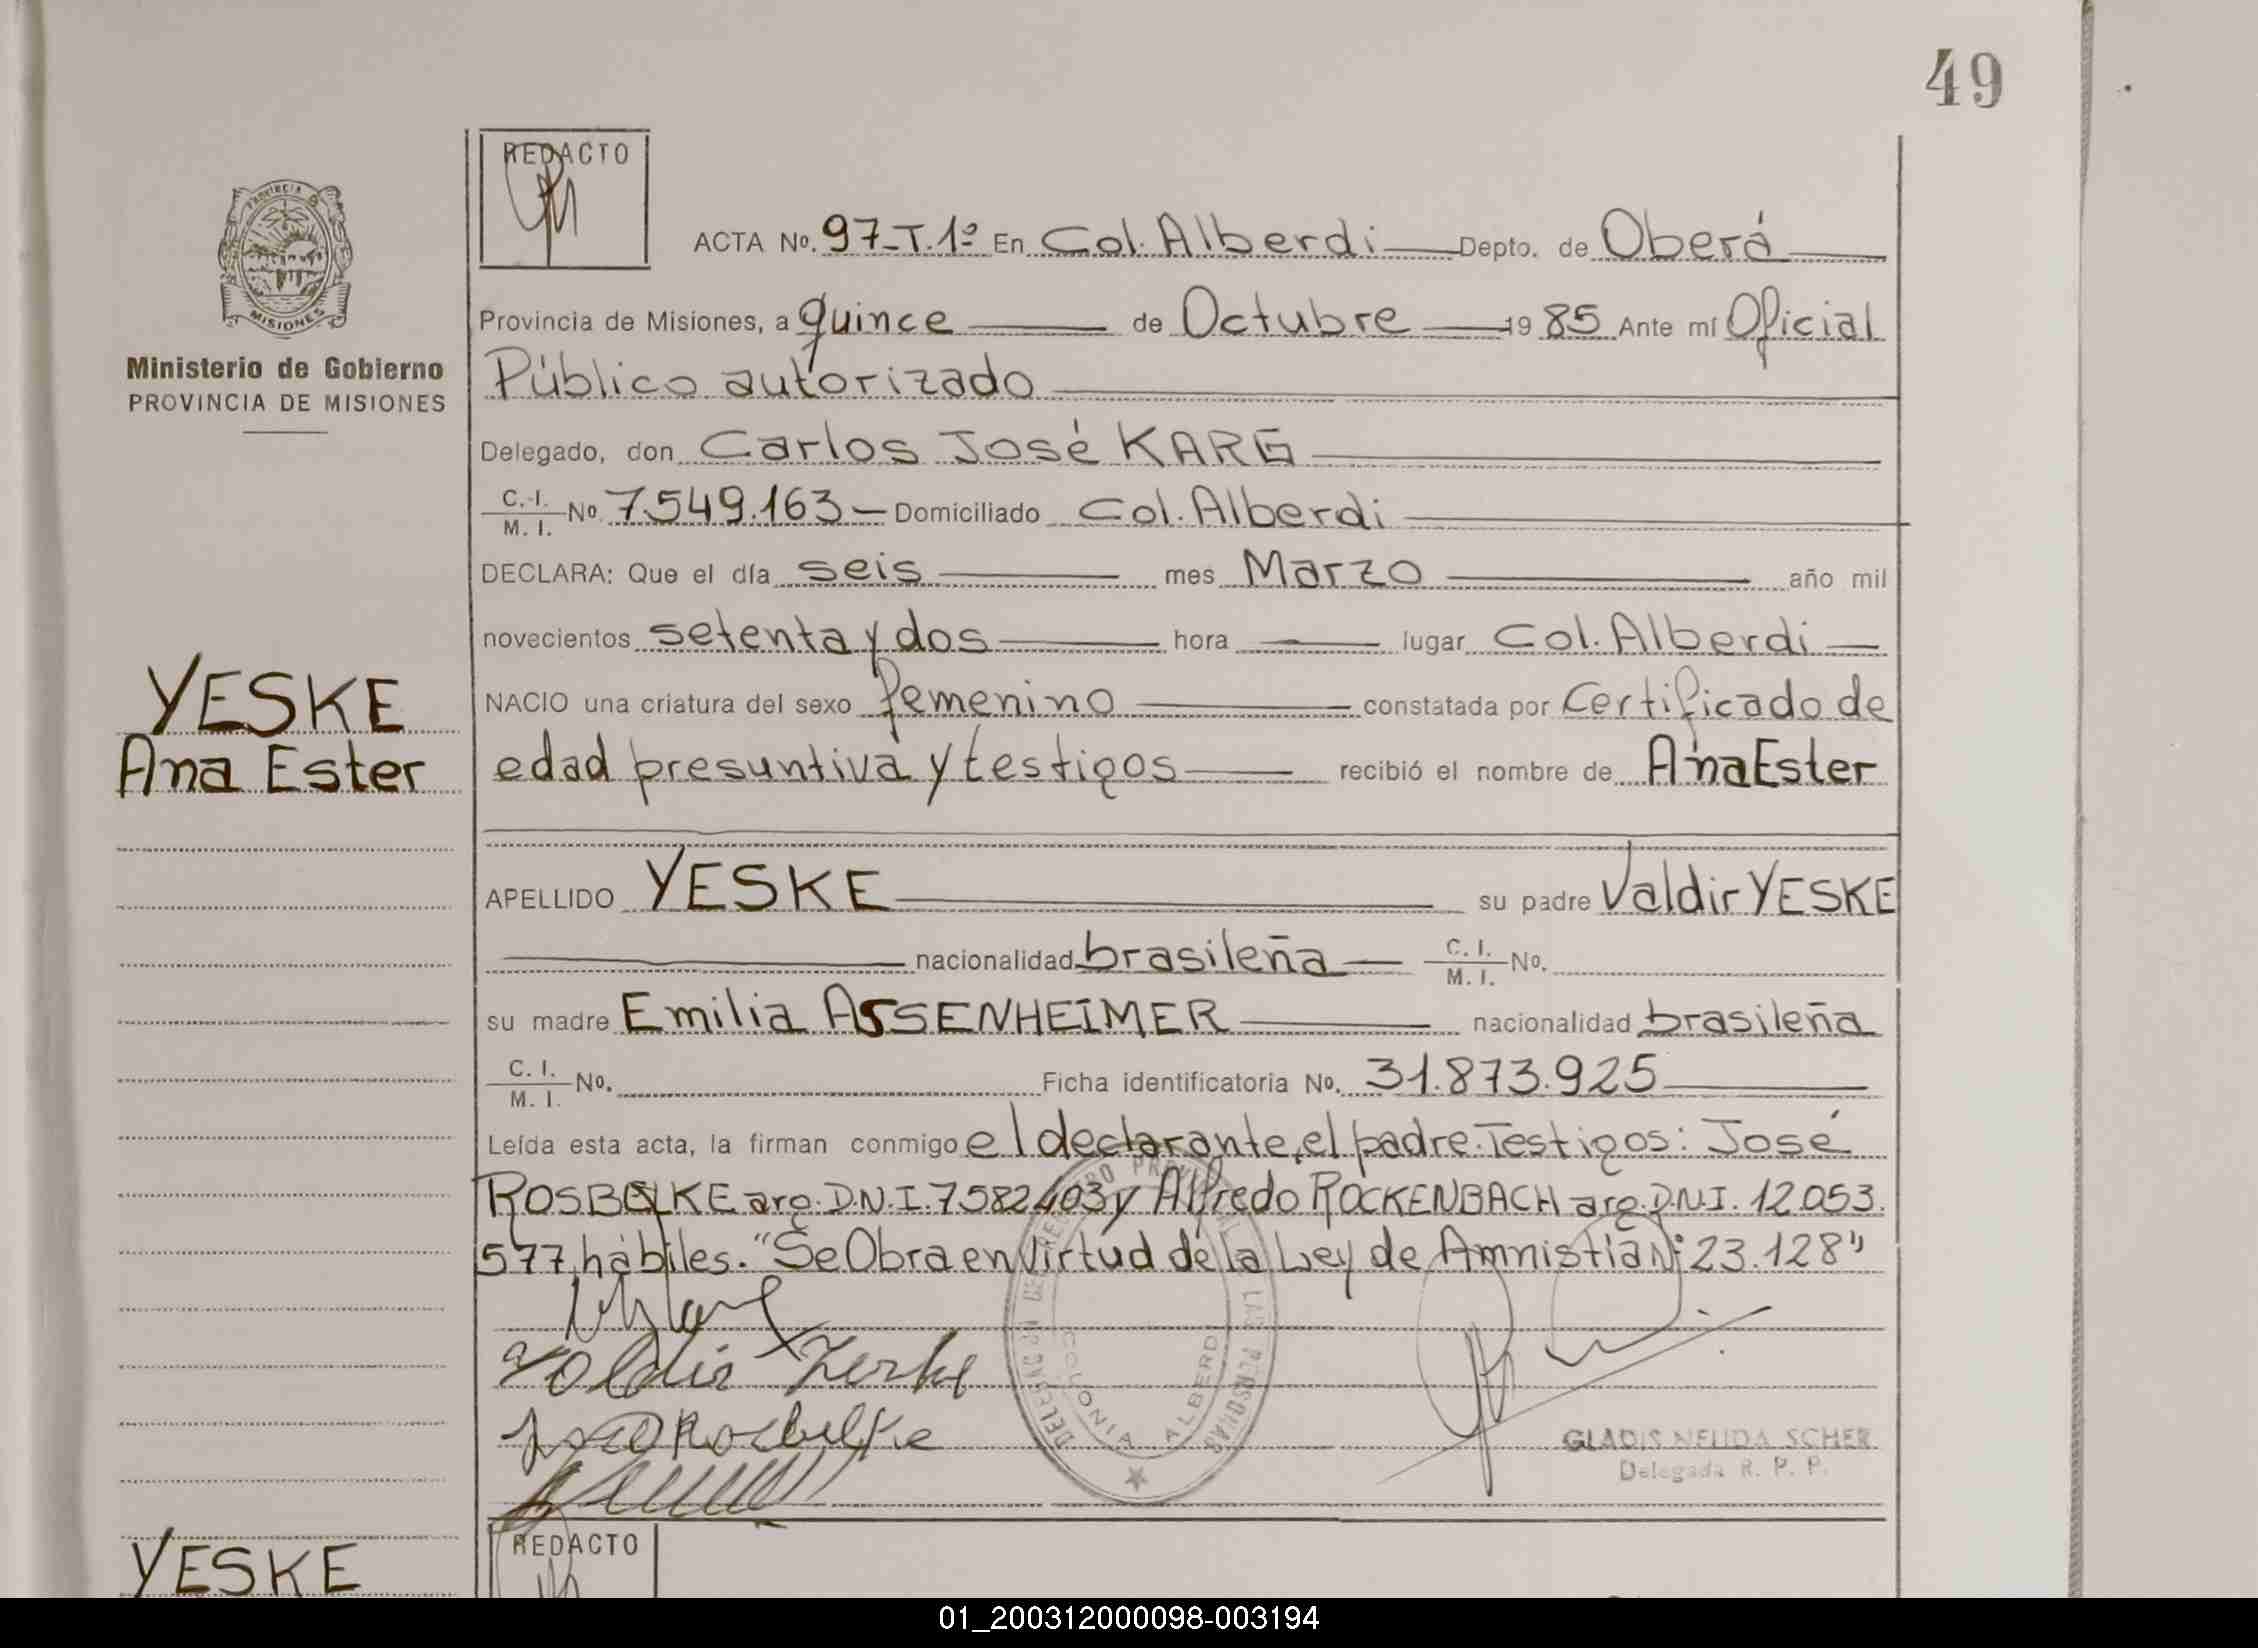 49
REDACTO
ACTA No. 97-T.1º En Col. Alberdi Depto. de Oberá
PROVINCIA
MISIONES
Provincia de Misiones, a quince de Octubre 19 85 Ante mí Oficial
Ministerio de Gobierno
PROVINCIA DE MISIONES
Público autorizado
Delegado, don Carlos José KARG
C. I. / M. I. No. 7.549.163 — Domiciliado Col. Alberdi
DECLARA: Que el día seis mes Marzo año mil
novecientos setenta y dos hora — lugar Col. Alberdi
YESKE
NACIO una criatura del sexo femenino constatada por Certificado de
Ana Ester
edad presuntiva y testigos recibió el nombre de Ana Ester
APELLIDO YESKE su padre Valdir YESKE
nacionalidad brasileña C. I. / M. I. No.
su madre Emilia ASSENHEIMER nacionalidad brasileña
C. I. / M. I. No. Ficha identificatoria No. 31.873.925
Leída esta acta, la firman conmigo el declarante, el padre. Testigos: José
ROSBELKE arg. D.N.I. 7582403 y Alfredo ROCKENBACH arg. D.N.I. 12.053.
577, hábiles. "Se Obra en Virtud de la Ley de Amnistía Nº 23.128"
DELEGACION DEL REGISTRO PROVINCIAL DE LAS PERSONAS
COLONIA ALBERDI
Valdir Yeske
José Rosbelke
GLADIS NELIDA SCHER
Delegada R. P. P.
REDACTO
YESKE
01_200312000098-003194